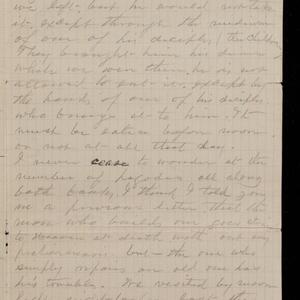 we left - but he would not take
it, except through the medium
of one of his disciples, (the children)
They brought him his dinner
while we were there, he is not
allowed to eat it, except by
the hands of one of his disciples
who brings it to him. It
must be eaten before noon
or not at all that day.
I never cease to wonder at the
number of pagodas all along
both banks, I think I told you
in a previous letter that the
man who builds one goes
to Heaven at death with out any
but - the one who
simply repairs an old one has
his troubles. We visited by moon